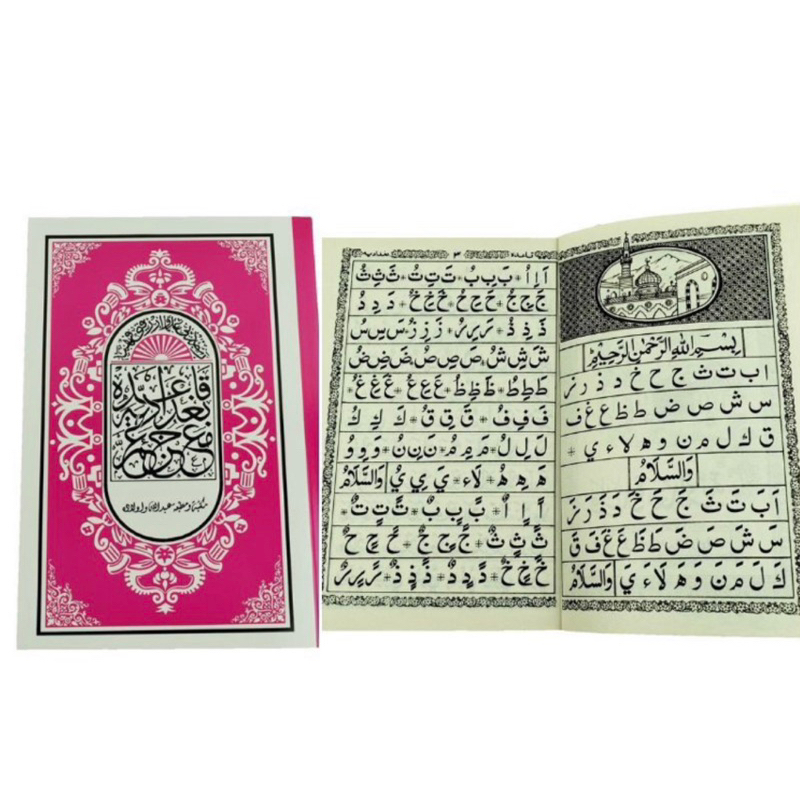 قاعدة
بغدادية
مع جزء عم
مكتبة ومطبعة عبدالله واولاده
بِسْمِ اللهِ الرَّحْمٰنِ الرَّحِيْمِ
ا ب ت ث ج ح خ د ذ ر ز
س ش ص ض ط ظ ع غ ف
ق ك ل م ن و ه لا ء ي +
وَالسَّلَامُ
اَ بَ تَ ثَ جَ حَ خَ دَ ذَ رَ زَ
سَ شَ صَ ضَ طَ ظَ عَ غَ فَ قَ
كَ لَ مَ نَ وَ هَ لَا ءَ يَ وَالسَّلَامُ
قاعدة ٣ بغدادية
اَ اِ اُ + بَ بِ بُ + تَ تِ تُ + ثَ ثِ ثُ
جَ جِ جُ + حَ حِ حُ + خَ خِ خُ + دَ دِ دُ
ذَ ذِ ذُ + رَ رِ رُ + زَ زِ زُ + سَ سِ سُ
شَ شِ شُ + صَ صِ صُ + ضَ ضِ ضُ
طَ طِ طُ + ظَ ظِ ظُ + عَ عِ عُ + غَ غِ غُ
فَ فِ فُ + قَ قِ قُ + كَ كِ كُ
لَ لِ لُ + مَ مِ مُ + نَ نِ نُ + وَ وِ وُ
هَ هِ هُ + لَاء + يَ يِ يُ وَالسَّلَامُ
اً اٍ اٌ + بً بٍ بٌ + تً تٍ تٌ +
ثً ثٍ ثٌ + جً جٍ جٌ + حً حٍ حٌ
خً خٍ خٌ + دً دٍ دٌ + ذً ذٍ ذٌ + رً رٍ رٌ